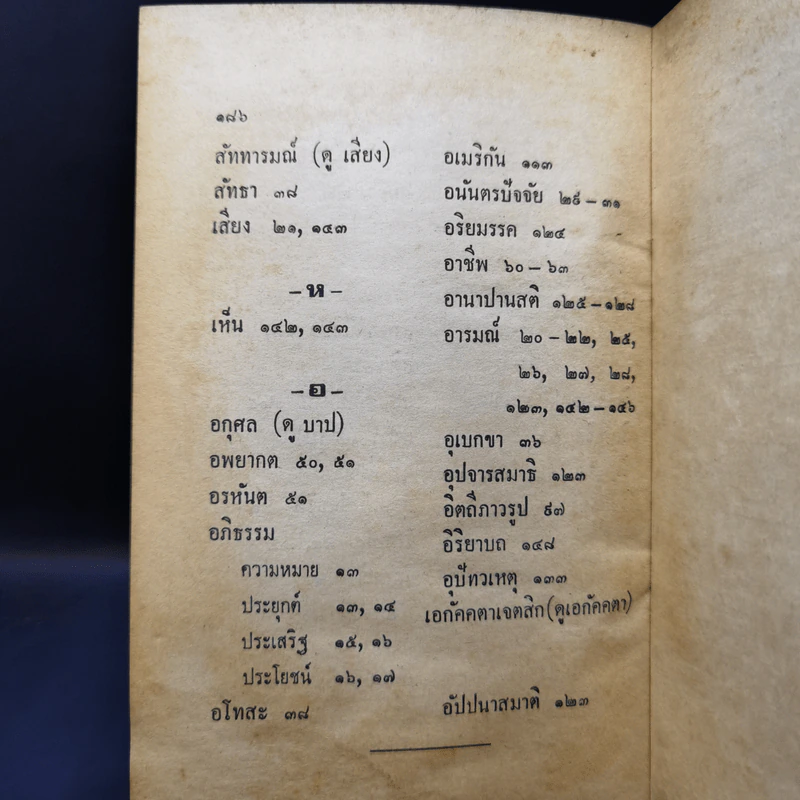 ๑๘๖
สัททารมณ์ (ดู เสียง)
สัทธา ๓๘
เสียง ๒๑, ๑๔๓
– ห –
เห็น ๑๔๒, ๑๔๓
– อ –
อกุศล (ดู บาป)
อพยากต ๕๐, ๕๑
อรหันต ๕๑
อภิธรรม
ความหมาย ๑๓
ประยุกต์ ๑๓, ๑๔
ประเสริฐ ๑๕, ๑๖
ประโยชน์ ๑๖, ๑๗
อโทสะ ๓๘
อเมริกัน ๑๑๓
อนันตรปัจจัย ๒๙ – ๓๑
อริยมรรค ๑๒๔
อาชีพ ๖๐ – ๖๓
อานาปานสติ ๑๒๕ – ๑๒๘
อารมณ์ ๒๐ – ๒๒, ๒๕,
๒๖, ๒๗, ๒๘,
๑๒๓, ๑๔๒ – ๑๔๖
อุเบกขา ๓๖
อุปจารสมาธิ ๑๒๓
อิตถีภาวรูป ๙๗
อิริยาบถ ๑๔๘
อุปัทวเหตุ ๑๓๓
เอกัคคตาเจตสิก (ดูเอกัคคตา)
อัปปนาสมาติ ๑๒๓